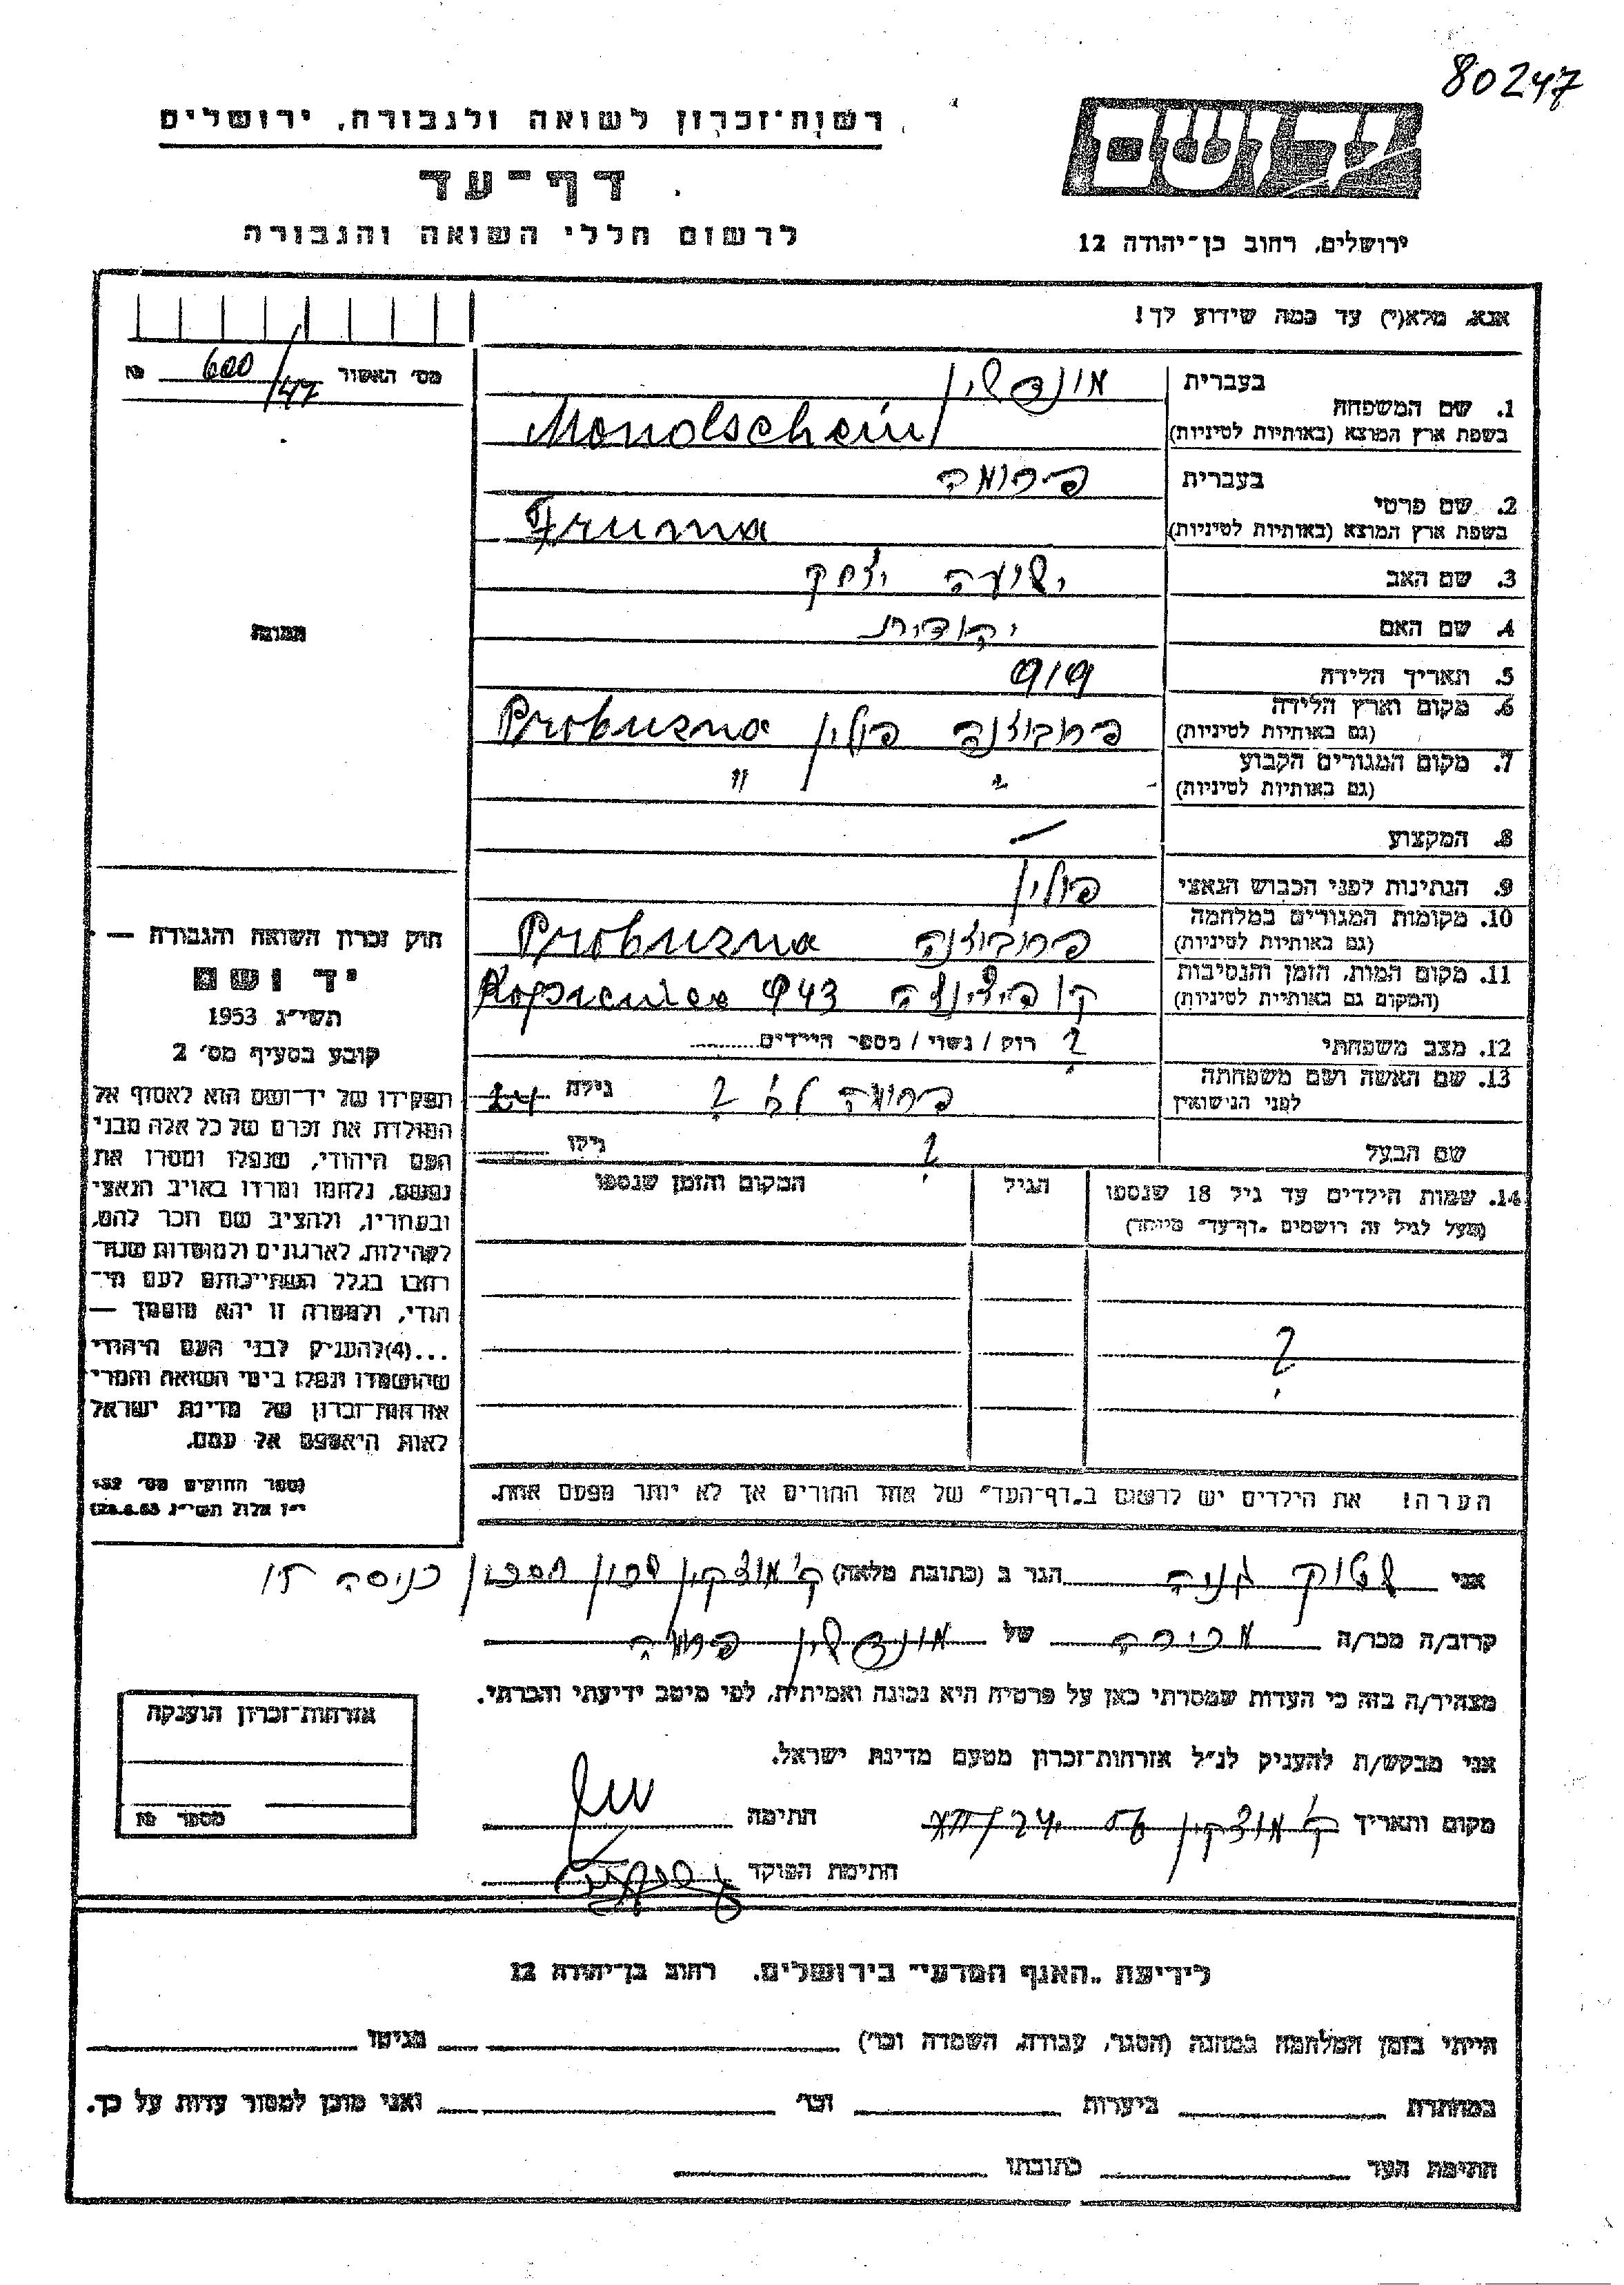 80247
רשות־זכרון לשואה ולגבורה, ירושלים
דף־עד
לרשום חללי השואה והגבורה
ירושלים, רחוב בן־יהודה 12
אנא, מלא(י) עד כמה שידוע לך!
מס׳ האשור 600/47 №
בעברית מונדשין
1. שם המשפחה
בשפת ארץ המוצא (באותיות לטיניות) Mondschein
בעברית פרומה
2. שם פרטי
בשפת ארץ המוצא (באותיות לטיניות) Fruma
3. שם האב ישעיה יצחק
4. שם האם
5. תאריך הלידה 919
6. מקום וארץ הלידה
(גם באותיות לטיניות) פרובוזנה פולין Probuzna
7. מקום המגורים הקבוע
(גם באותיות לטיניות) " "
8. המקצוע —
9. הנתינות לפני הכבוש הנאצי פולין
10. מקומות המגורים במלחמה
(גם באותיות לטיניות) פרובוזנה Probuzna
11. מקום המות, הזמן והנסיבות
(המקום גם באותיות לטיניות) קופיצינצה 943
12. מצב משפחתי ? רוק / נשוי / מספר הילדים
13. שם האשה ושם משפחתה
לפני הנישואין פרומה לב ? גילה 24
שם הבעל ? גילו
14. שמות הילדים עד גיל 18 שנספו
(מעל לגיל זה רושמים „דף־עד" מיוחד)
הגיל
המקום והזמן שנספו
?
הערה! את הילדים יש לרשום ב„דף־העד" של אחד ההורים אך לא יותר מפעם אחת.
תמונה
חוק זכרון השואה והגבורה —
יד ושם
תשי״ג 1953
קובע בסעיף מס׳ 2
תפקידו של יד־ושם הוא לאסוף אל
המולדת את זכרם של כל אלה מבני
העם היהודי, שנפלו ומסרו את
נפשם, נלחמו ומרדו באויב הנאצי
ובעוזריו, ולהציב שם וזכר להם,
לקהילות, לארגונים ולמוסדות שנח־
רבו בגלל השתייכותם לעם הי־
הודי, ולמטרה זו יהא מוסמך —
...(4) להעניק לבני העם היהודי
שהושמדו ונפלו בימי השואה והמרי
אזרחות־זכרון של מדינת ישראל
לאות היאספם אל עמם.
(ספר החוקים מס׳ 132
י״ז אלול תשי״ג 28.8.53)
אני שטוק הגר ב (כתובת מלאה) ק׳ מוצקין שכון חסכון כניסה
קרוב/ה מכר/ה מכירה של מונדשין פרומה
מצהיר/ה בזה כי העדות שמסרתי כאן על פרטיה היא נכונה ואמיתית, לפי מיטב ידיעתי והכרתי.
אני מבקש/ת להעניק לנ״ל אזרחות־זכרון מטעם מדינת ישראל.
מקום ותאריך ק׳ מוצקין חתימה
חתימת הפוקד
אזרחות־זכרון הוענקה
מספר №
לידיעת „האגף המדעי" בירושלים, רחוב בן־יהודה 12
הייתי בזמן המלחמה במחנה (הסגר, עבודה, השמדה וכו׳) בגיטו
במחתרת ביערות וכו׳ ואני מוכן למסור עדות על כך.
חתימת העד כתובתו